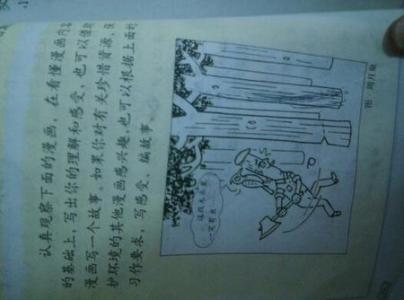 认真观察下面的漫画，在看懂漫画内容
的基础上，写出你的理解和感受，也可以借助
漫画写一个故事。如果你对有关珍惜资源、保
护环境的其他漫画感兴趣，也可以根据上面的
习作要求，写感受、编故事。
一定有虫！